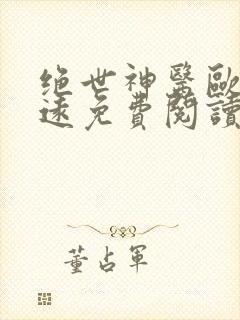 绝世神醫歐
速免費閱讀
董占軍